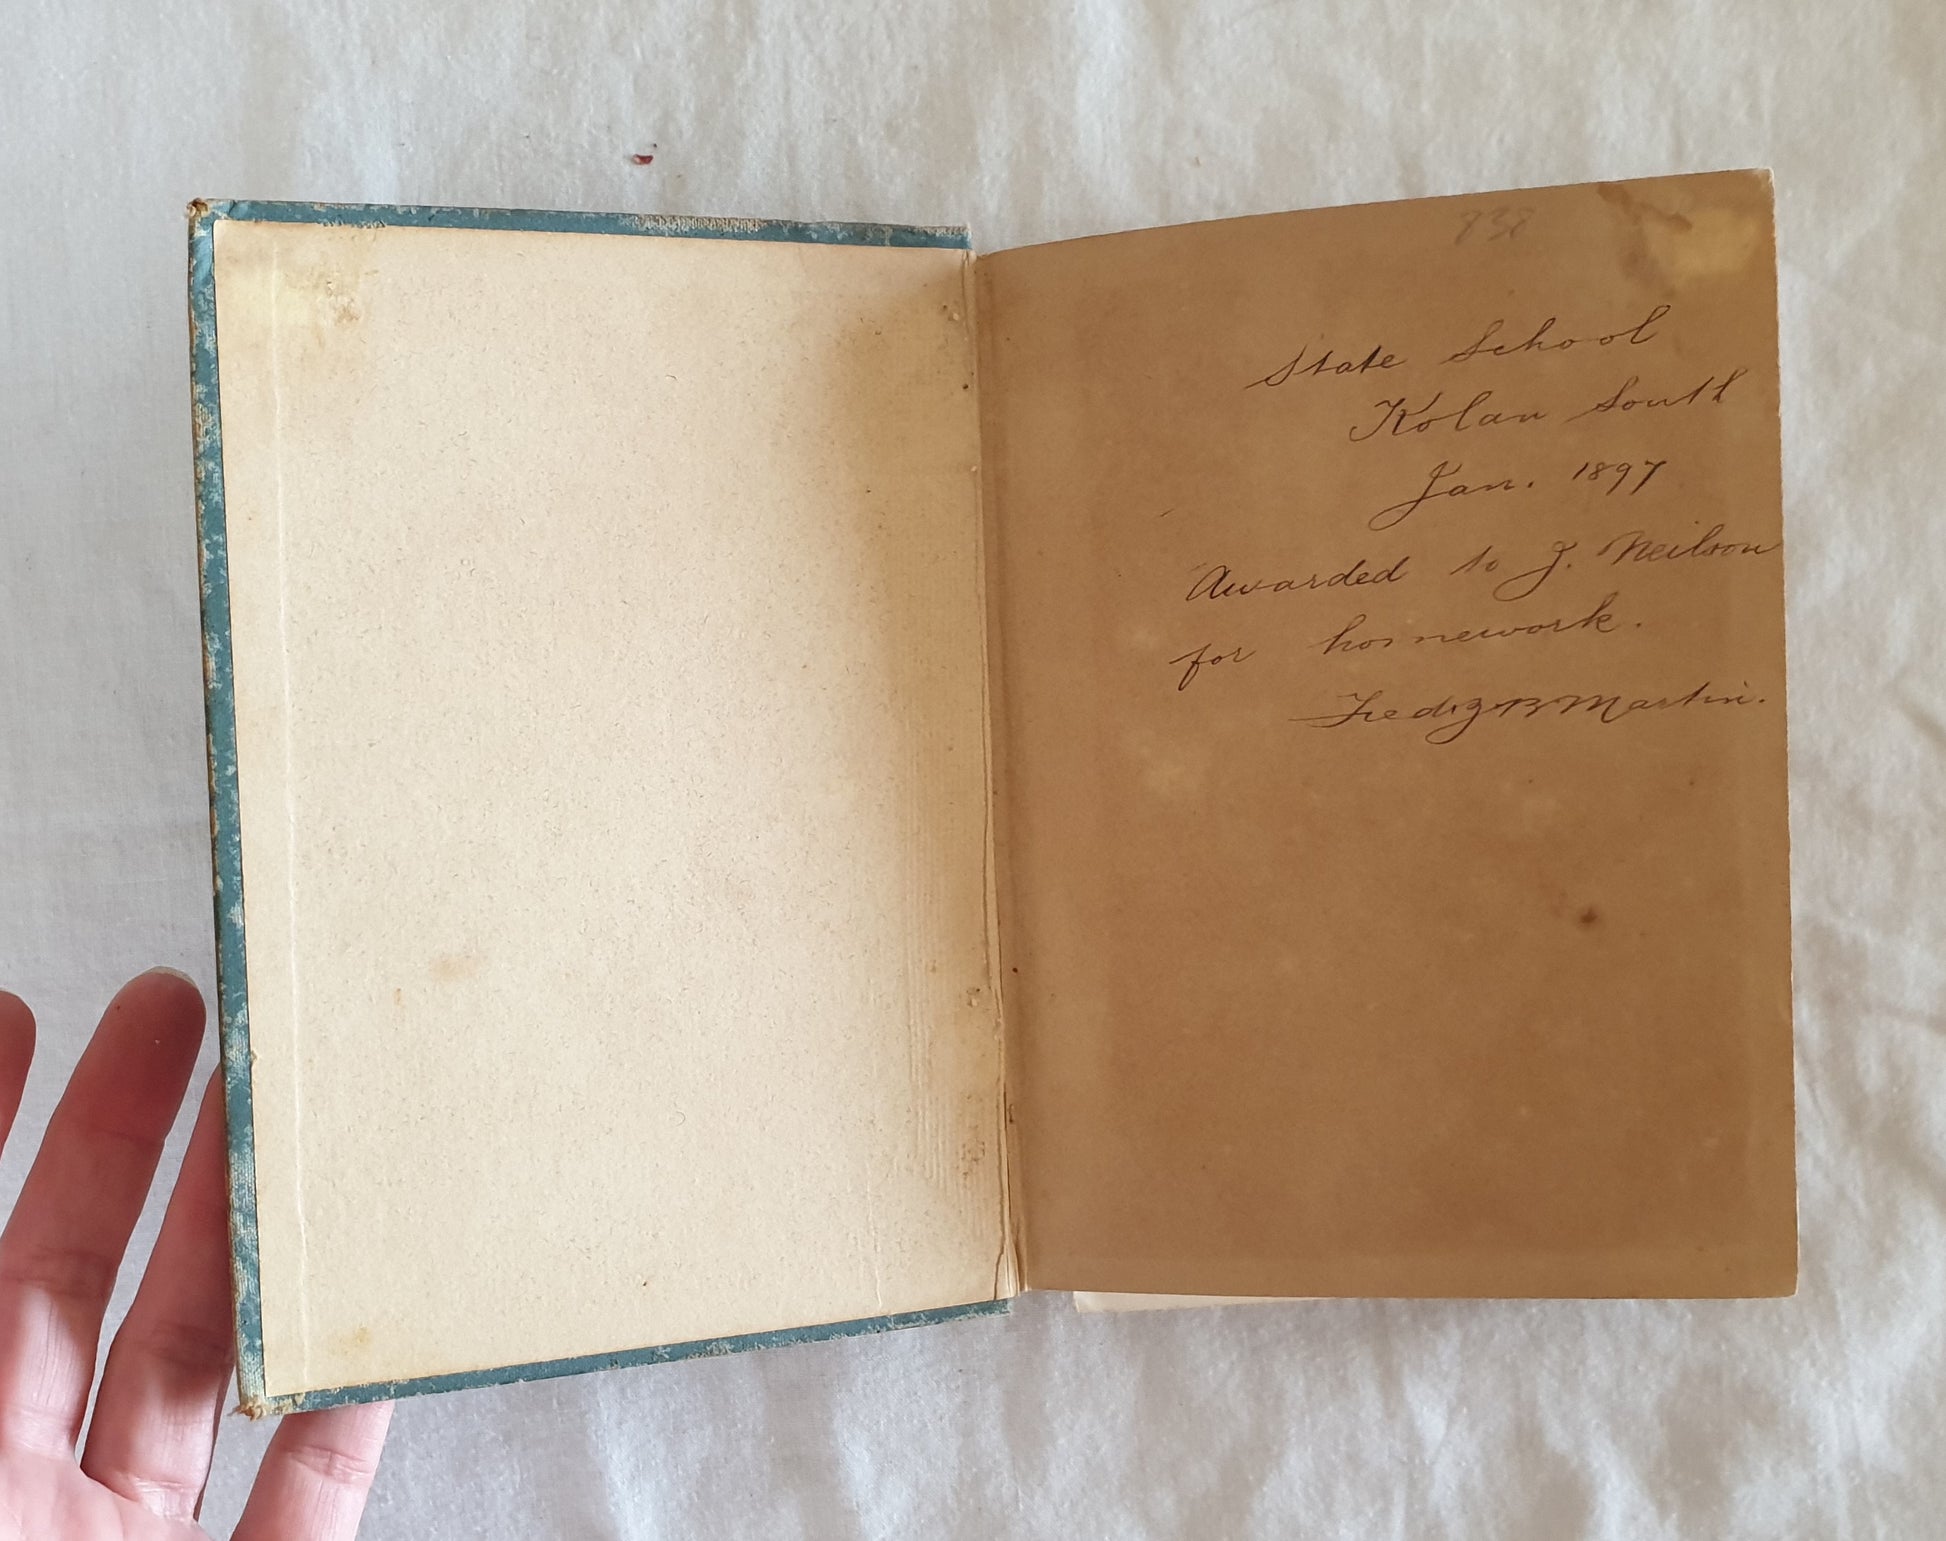 838
State School
Kolan South
Jan. 1897
Awarded to J. Neilson
for homework.
Martin.